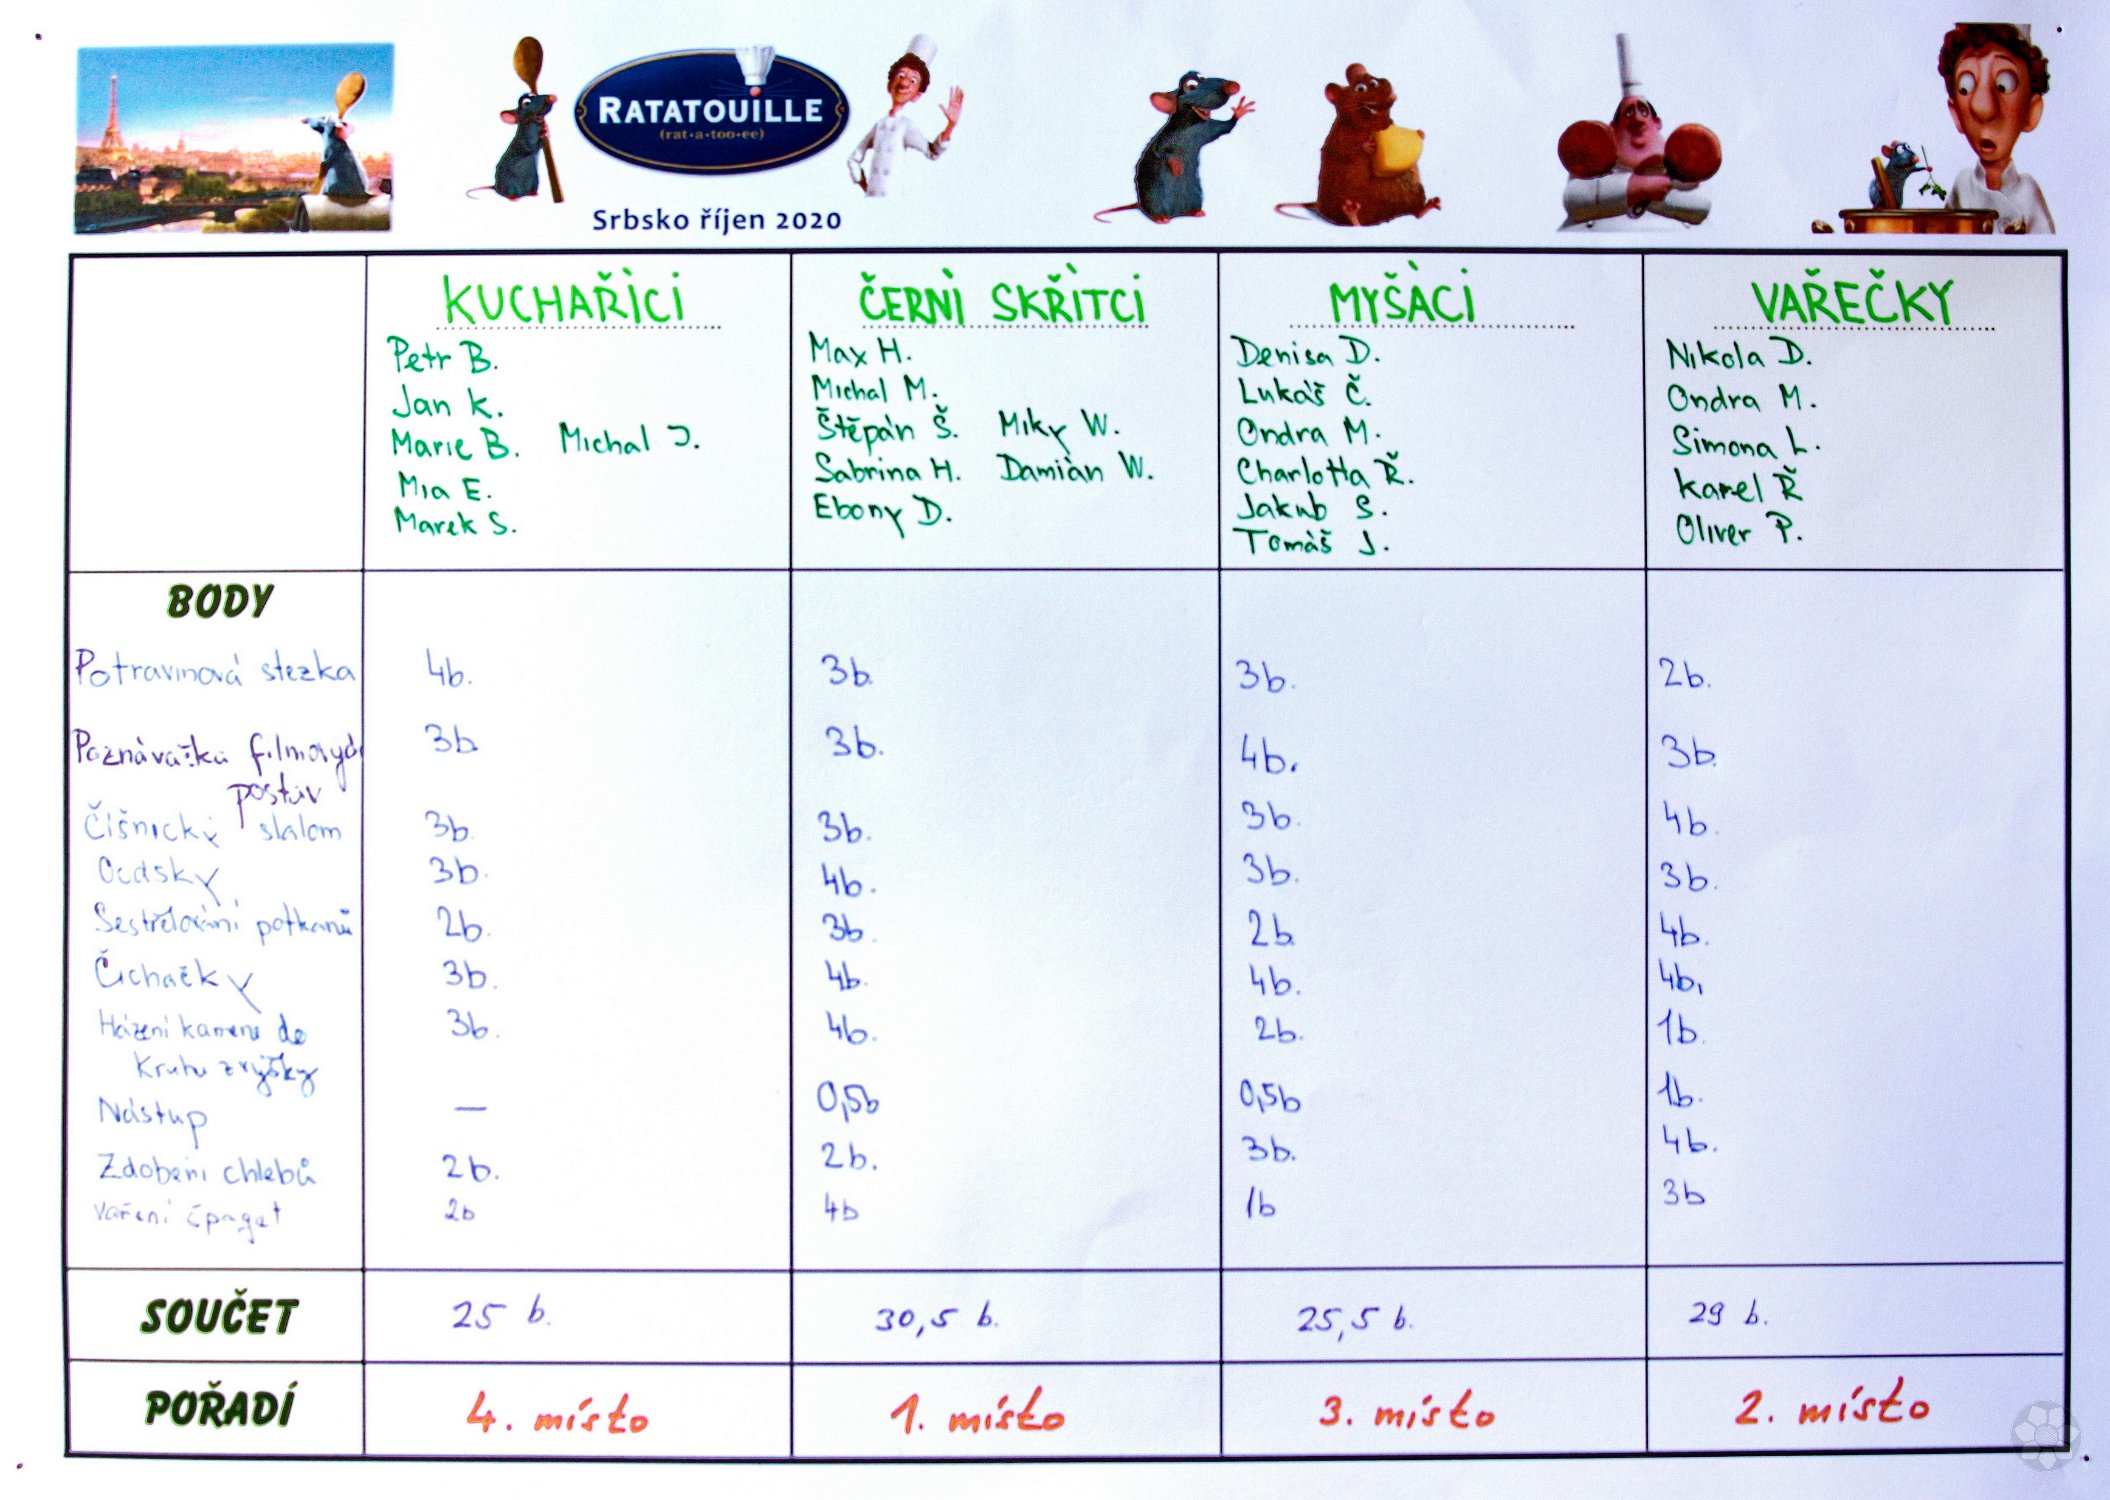 RATATOUILLE
(rat•a•too•ee)
Srbsko říjen 2020
KUCHAŘÍCI
Petr B.
Jan K.
Marie B. Michal J.
Mia E.
Marek S.
ČERNÍ SKŘÍTCI
Max H.
Michal M.
Štěpán Š. Miky W.
Sabrina H. Damián W.
Ebony D.
MYŠÁCI
Denisa D.
Lukáš Č.
Ondra M.
Charlotta Ř.
Jakub S.
Tomáš J.
VAŘEČKY
Nikola D.
Ondra M.
Simona L.
Karel Ř
Oliver P.
BODY
Potravinová stezka 4b. 3b. 3b. 2b.
Poznávačka filmových 3b 3b. 4b. 3b.
postav
Číšnický slalom 3b. 3b. 3b. 4b.
Ocásky 3b. 4b. 3b. 3b.
Sestřelování potkanů 2b. 3b. 2b 4b.
Čichačky 3b. 4b. 4b. 4b.
Házení kamenu do 3b. 4b. 2b. 1b.
Kruhu z výšky
Nástup — 0,5b 0,5b 1b.
Zdobení chlebů 2b. 2b. 3b. 4b.
Vaření špaget 2b 4b 1b 3b
SOUČET 25 b. 30,5 b. 25,5 b. 29 b.
POŘADÍ 4. místo 1. místo 3. místo 2. místo